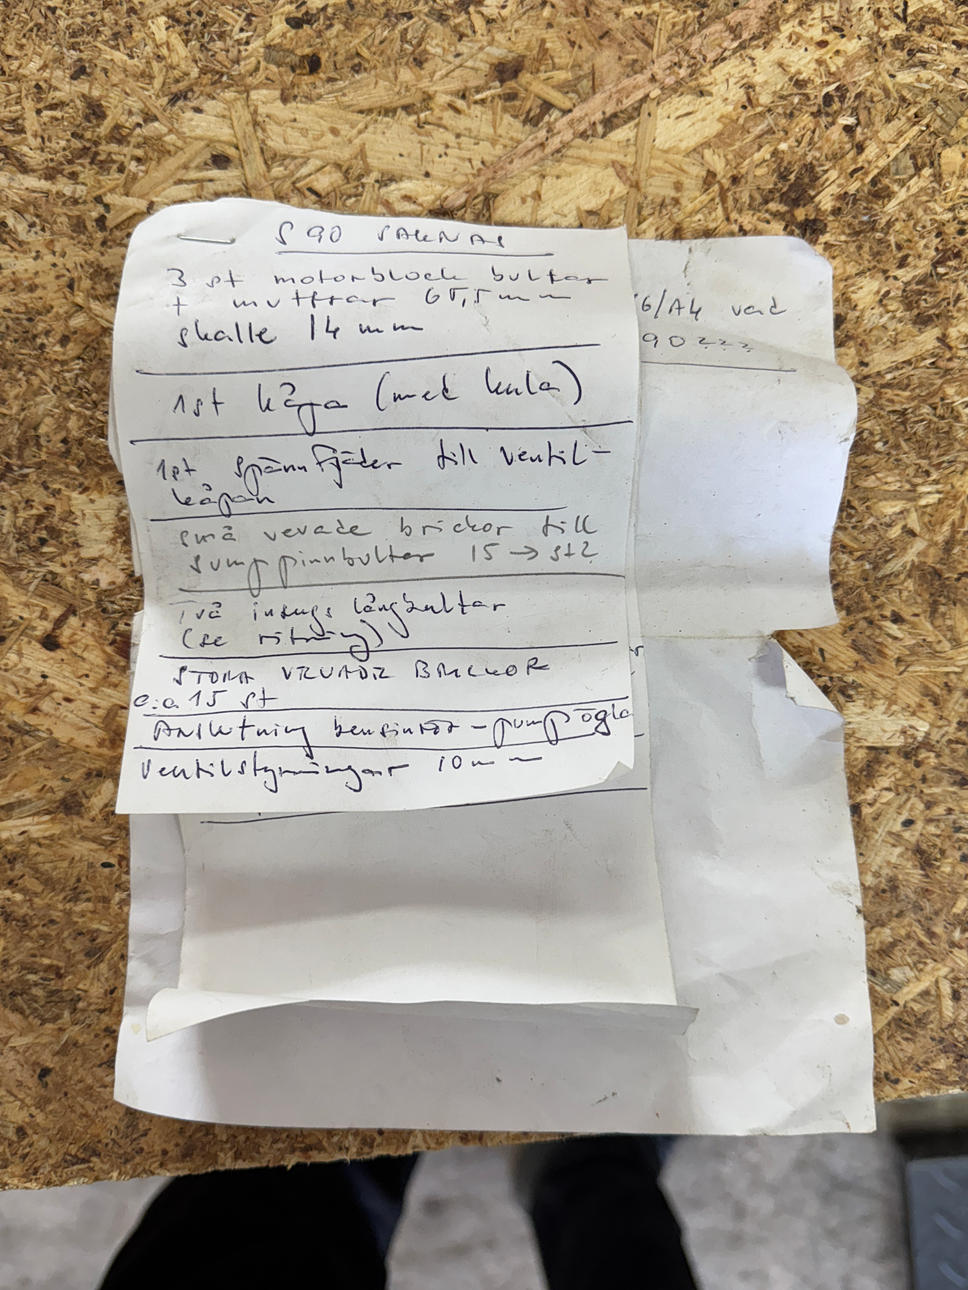 S90 SAKNAS
3 st motorblock bultar
+ muttrar 65,5 mm
skalle 14 mm
1st kåpa (med kula)
1st spännfjäder till ventil-
kåpan
små vevade brickor till
sumppinnbultar 15 → st?
Två insugs långbultar
(se ritning)
STORA VEVADE BRICKOR
c:a 15 st
Anslutning bensinrör - pump ögla
Ventilstyrningar 10 mm
6/A4 vad
90???